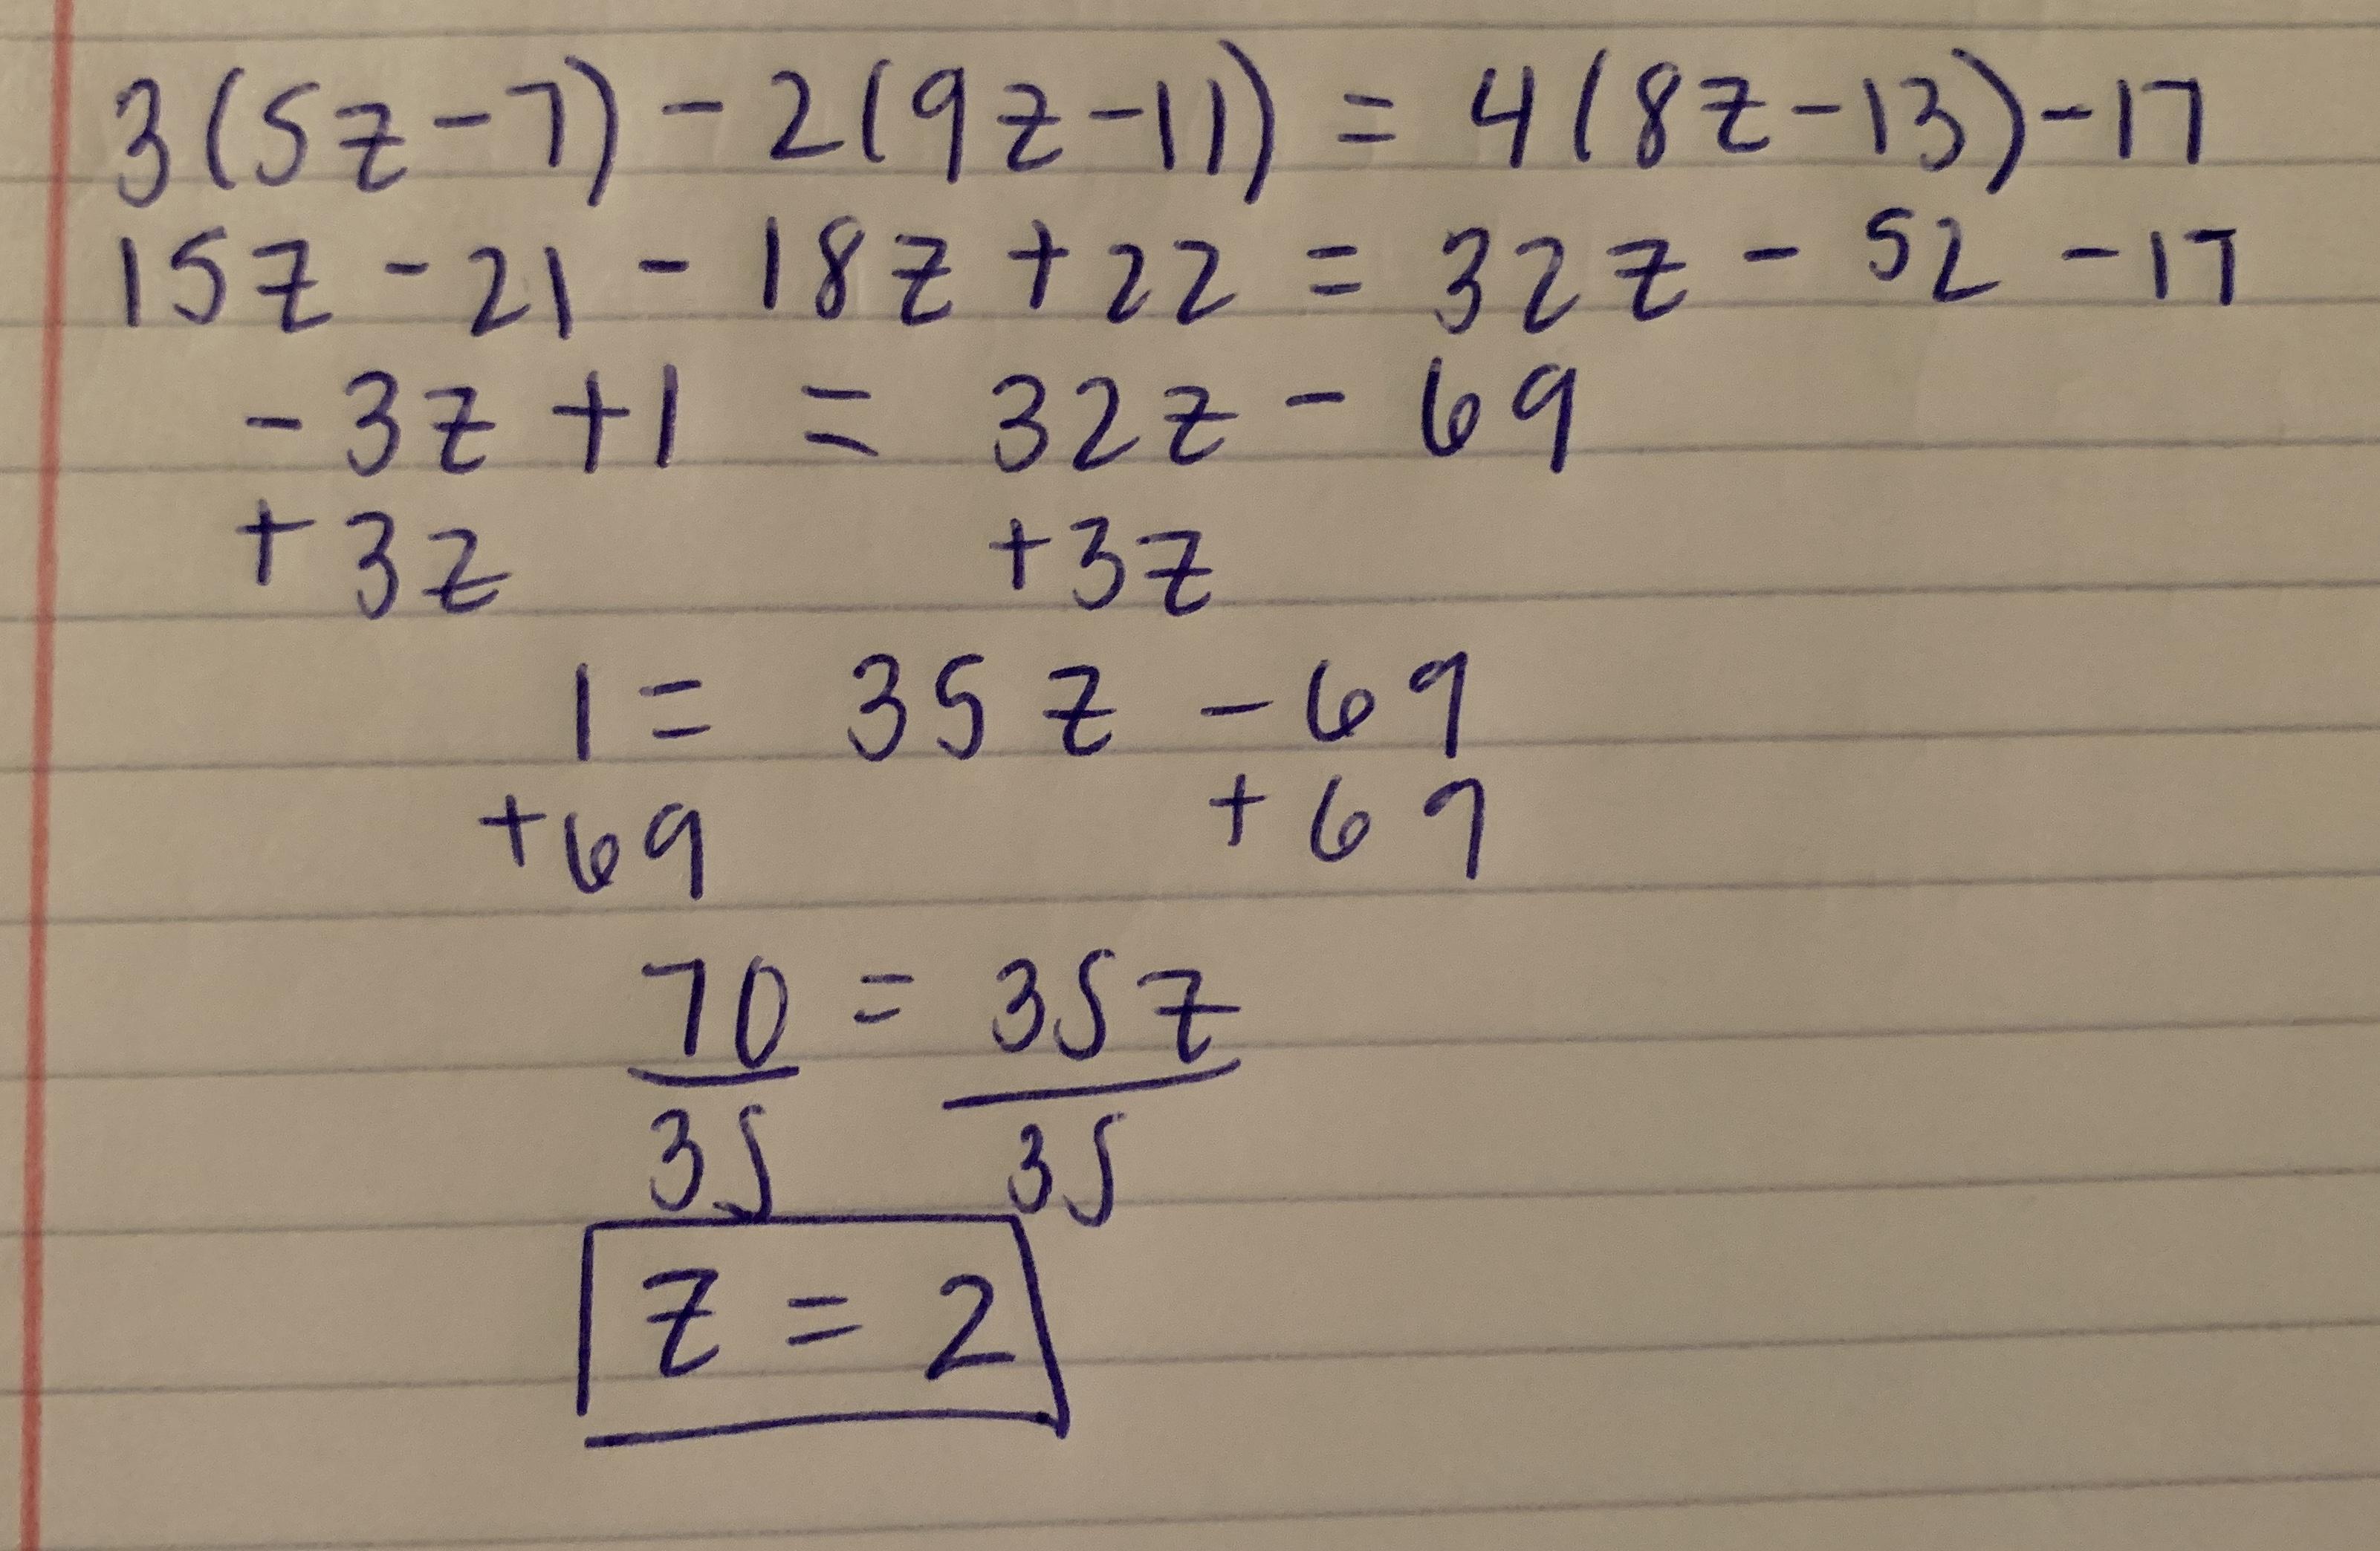 3(5z-7) - 2(9z-11) = 4(8z-13)-17
15z - 21 - 18z + 22 = 32z - 52 - 17
-3z +1 = 32z - 69
+3z +3z
1 = 35z - 69
+69 +69
70 = 35z
35 35
z = 2